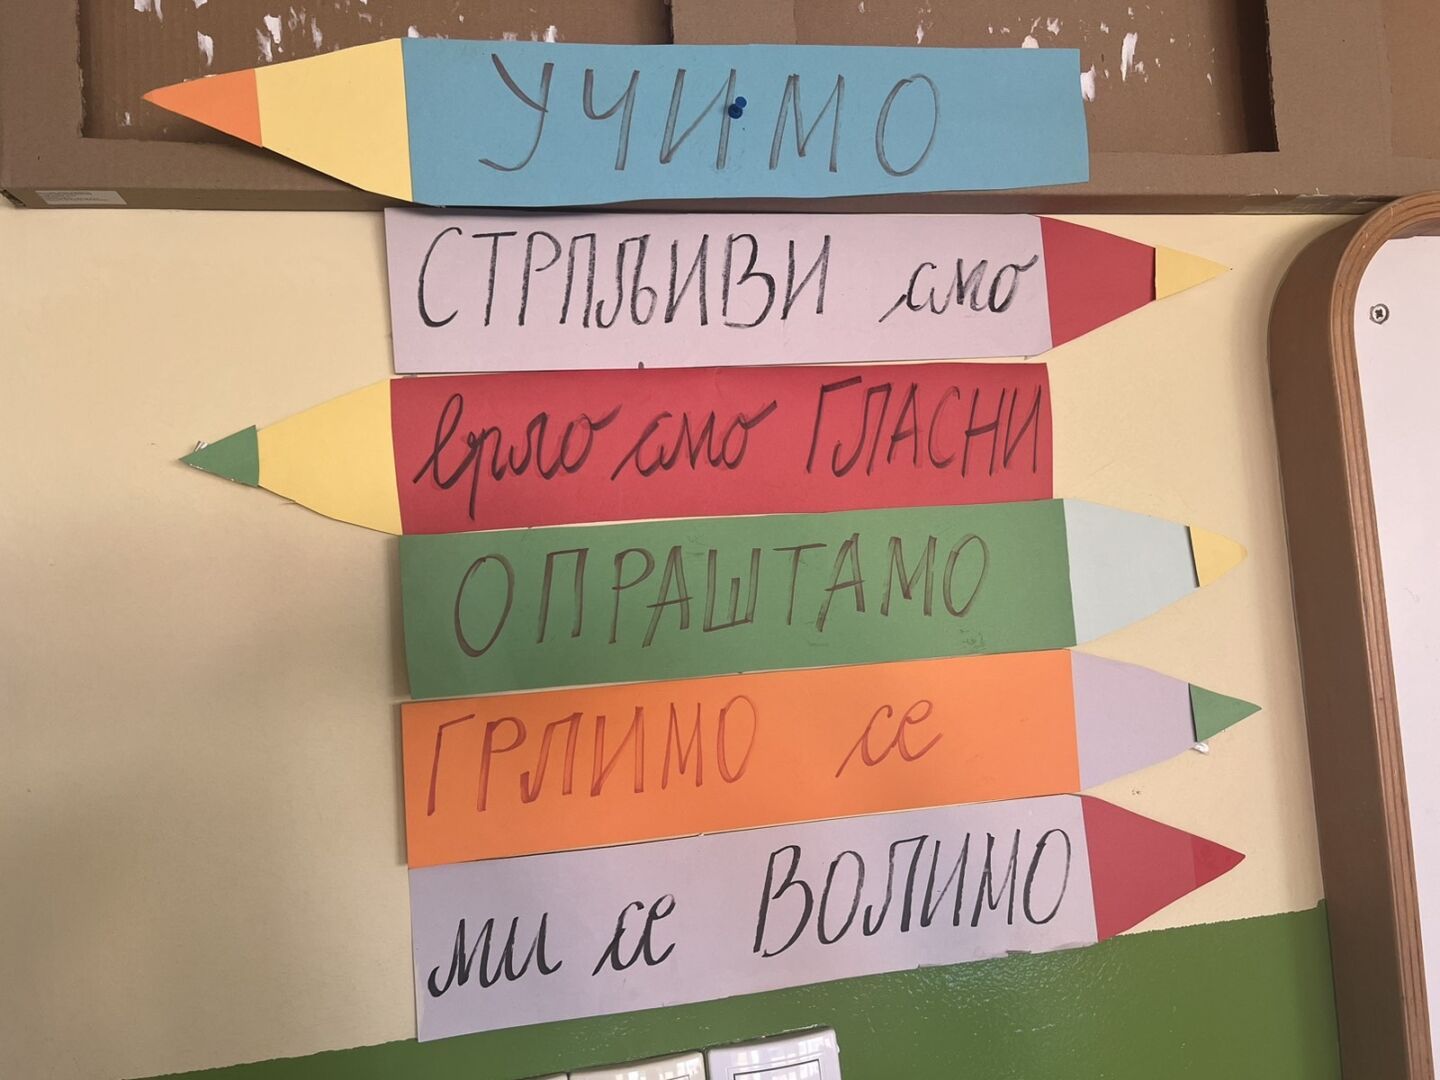 УЧИМО
СТРПЉИВИ смо
врло смо ГЛАСНИ
ОПРАШТАМО
ГРЛИМО се
ми се ВОЛИМО